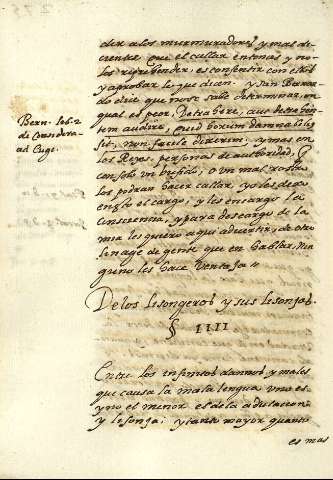 der a los murmuradores, y mas de-
cirente que el callar entonces y no
los reprehender, es consentir con ellos
y aprobar lo que dicen. y san Bernar-
do dice que no se sabe determinar, en
qual es peor, Detrahere, aut detrahen-
tem audire, quid horum damnabilius
sit, non facile dixerim. y mas en
los Reyes, personas de authoridad, q
con solo un bufido, o un mal rostro
los podran hacer callar, yo les dexo
en esto el cargo, y les encargo la
consciencia, y para descargo de la
mia les quiero aqui advertir, de otro
linage de gente que en hablar, nin
guno les hace ventaja //
Bern. lib. 2
de Considera.
ad Euge.
De los lisongeros y sus lisonjas.
§ IIII
Entre los infinitos dannos y males
que causa la mala lengua uno es
y no el menor el de la adulacion
y lisonja; y tanto mayor quanto
es mas